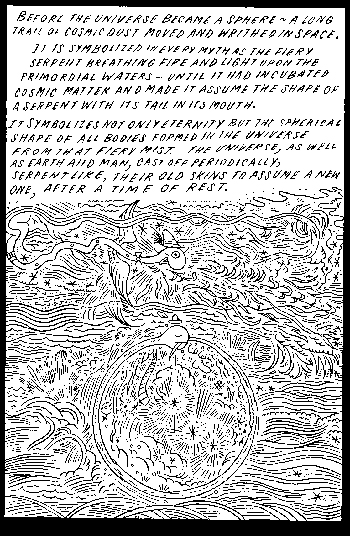 BEFORE THE UNIVERSE BECAME A SPHERE ~ A LONG
TRAIL OF COSMIC DUST MOVED AND WRITHED IN SPACE.
IT IS SYMBOLIZED IN EVERY MYTH AS THE FIERY
SERPENT BREATHING FIRE AND LIGHT UPON THE
PRIMORDIAL WATERS ~ UNTIL IT HAD INCUBATED
COSMIC MATTER AND MADE IT ASSUME THE SHAPE OF
A SERPENT WITH ITS TAIL IN ITS MOUTH.
IT SYMBOLIZES NOT ONLY ETERNITY BUT THE SPHERICAL
SHAPE OF ALL BODIES FORMED IN THE UNIVERSE
FROM THAT FIERY MIST. THE UNIVERSE, AS WELL
AS EARTH AND MAN, CAST OFF PERIODICALLY,
SERPENTLIKE, THEIR OLD SKINS TO ASSUME A NEW
ONE, AFTER A TIME OF REST.